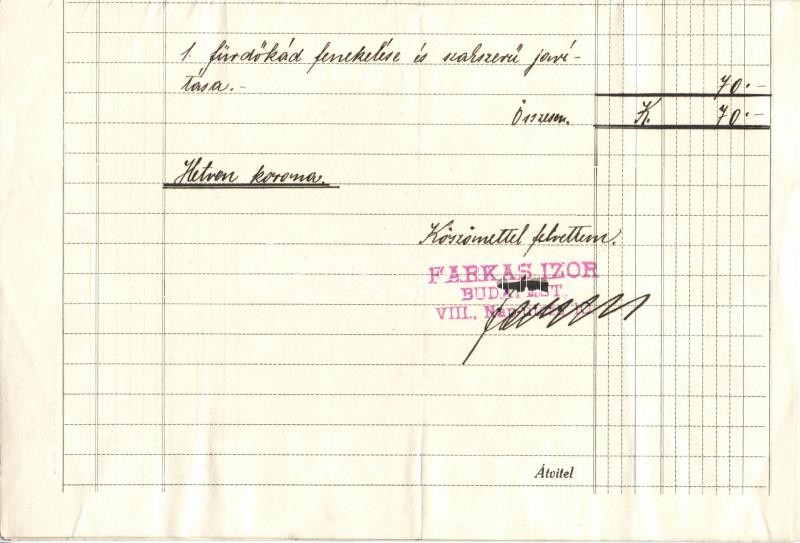 1. fürdőkád fenekelése és szakszerű javí-
tása.- 70.-
Összesen. K. 70.-
Hetven korona.
Köszönettel felvettem.
FARKAS IZOR
BUDAPEST.
VIII.,
Átvitel